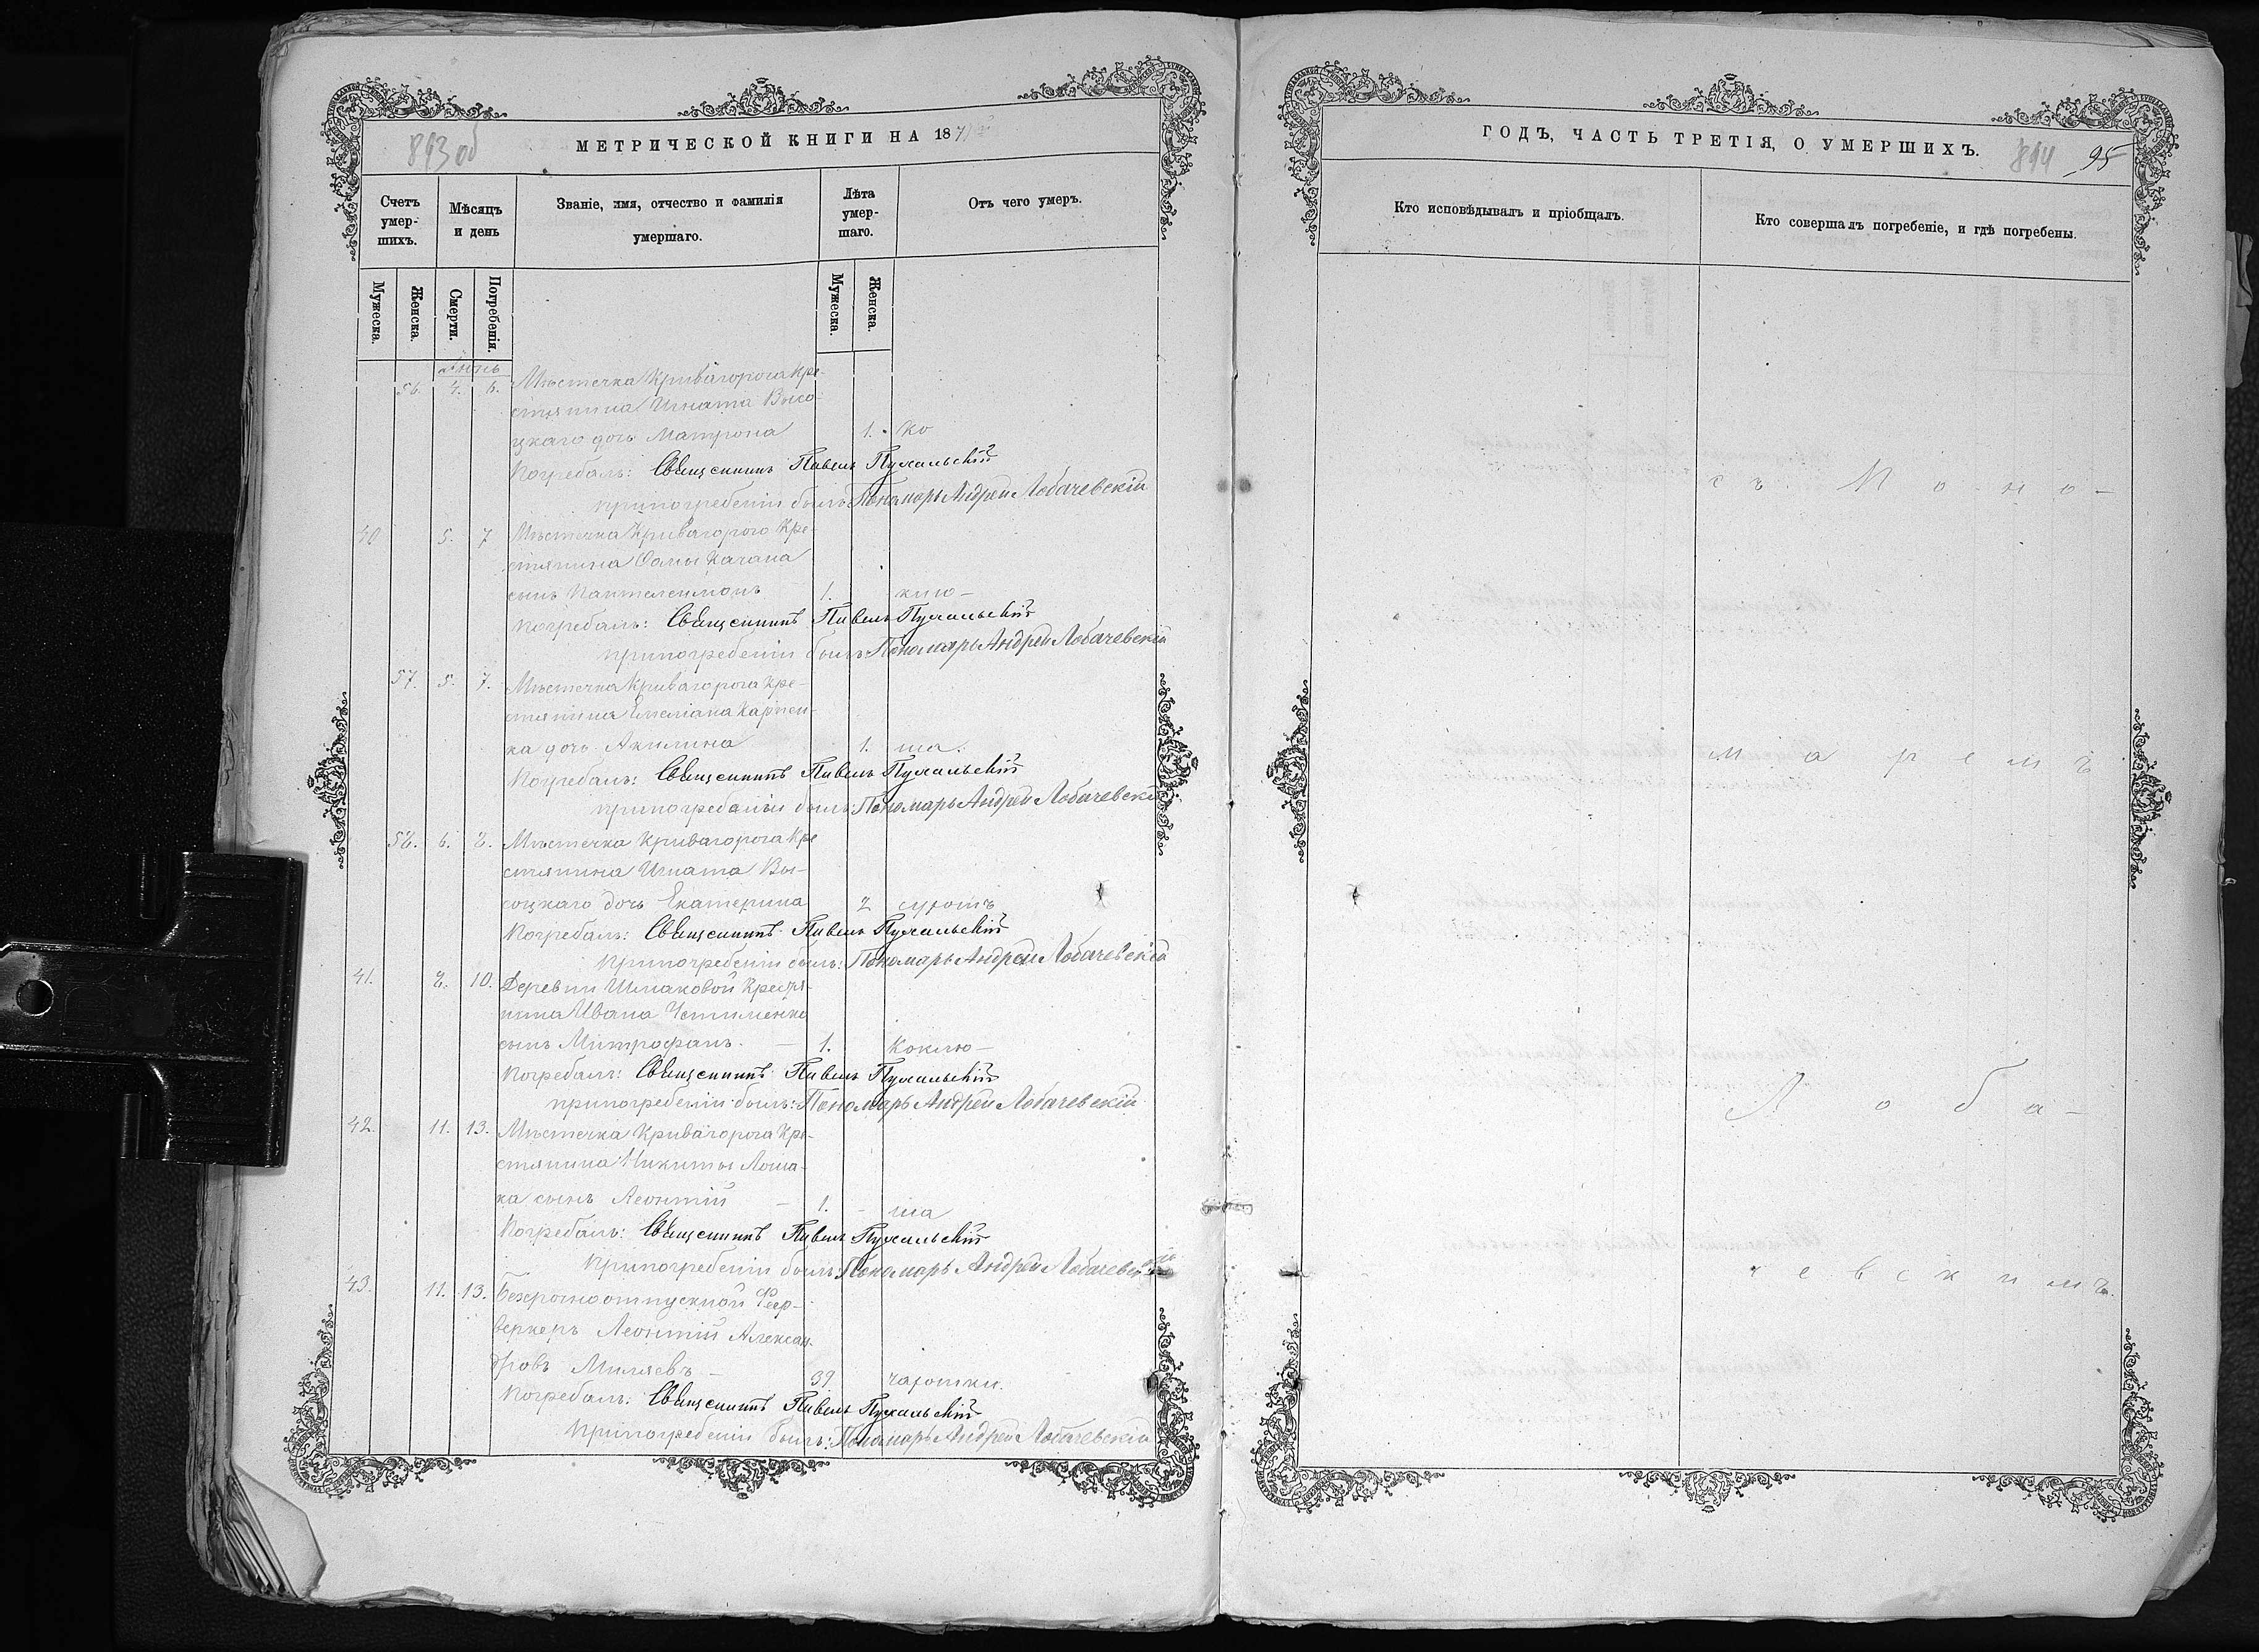 893 об
МЕТРИЧЕСКОЙ КНИГИ НА 187
Счетъ умер-шихъ.
Мѣсяцъ и день
Званіе, имя, отчество и фамилія умершаго.
Лѣта умер-шаго.
Отъ чего умеръ.
Мужеска.
Женска.
Смерти.
Погребенія.
Мужеска.
Женска.
56. 4. 6. Мѣстечка Кривагорога Кре-
стянина Игната Высо-
цкаго дочь Матрона 1. Ко
Погребалъ: Священникъ Павелъ
при погребеніи былъ: Пономарь Андрей Лобачевскій
40 5. 7 Мѣстечка Кривагорога Кре-
стянина Фомы Качана
сынъ Пантелеимонъ 1. клю-
Погребалъ: Священникъ Павелъ
при погребеніи былъ: Пономарь Андрей Лобачевскій
57. 5. 7. Мѣстечка Кривагорога Кре-
стянина Емеліана Карпен-
ка дочь Акилина 1. ша.
Погребалъ: Священникъ Павелъ
при погребеніи былъ: Пономарь Андрей Лобачевскій
58. 6. 8. Мѣстечка Кривагорога Кре
стянина Игната Вы-
соцкаго дочь Екатерина 2
Погребалъ: Священникъ Павелъ
при погребеніи былъ: Пономарь Андрей Лобачевскій
41. 8. 10. Деревни Шмаковой Крестя-
нина Ивана
сынъ Митрофанъ. — 1. Коклю-
Погребалъ: Священникъ Павелъ
при погребеніи былъ: Пономарь Андрей Лобачевскій
42. 11. 13. Мѣстечка Кривагорога Кре-
стянина Никиты Лоша-
ка сынъ Леонтій — 1. ша
Погребалъ: Священникъ Павелъ
При погребеніи былъ: Пономарь Андрей Лобачевскій
43. 11. 13. Безсрочноотпускной Феер-
веркеръ Леонтій Алексан-
дровъ Миляевъ — 39 чахотки.
Погребалъ: Священникъ Павелъ
При погребеніи былъ: Пономарь Андрей Лобачевскій
ГОДЪ, ЧАСТЬ ТРЕТІЯ, О УМЕРШИХЪ.
894 95
Кто исповѣдывалъ и пріобщалъ.
Кто совершалъ погребеніе, и гдѣ погребены.
съ Поно-
маремъ
Лоба-
чевскимъ.